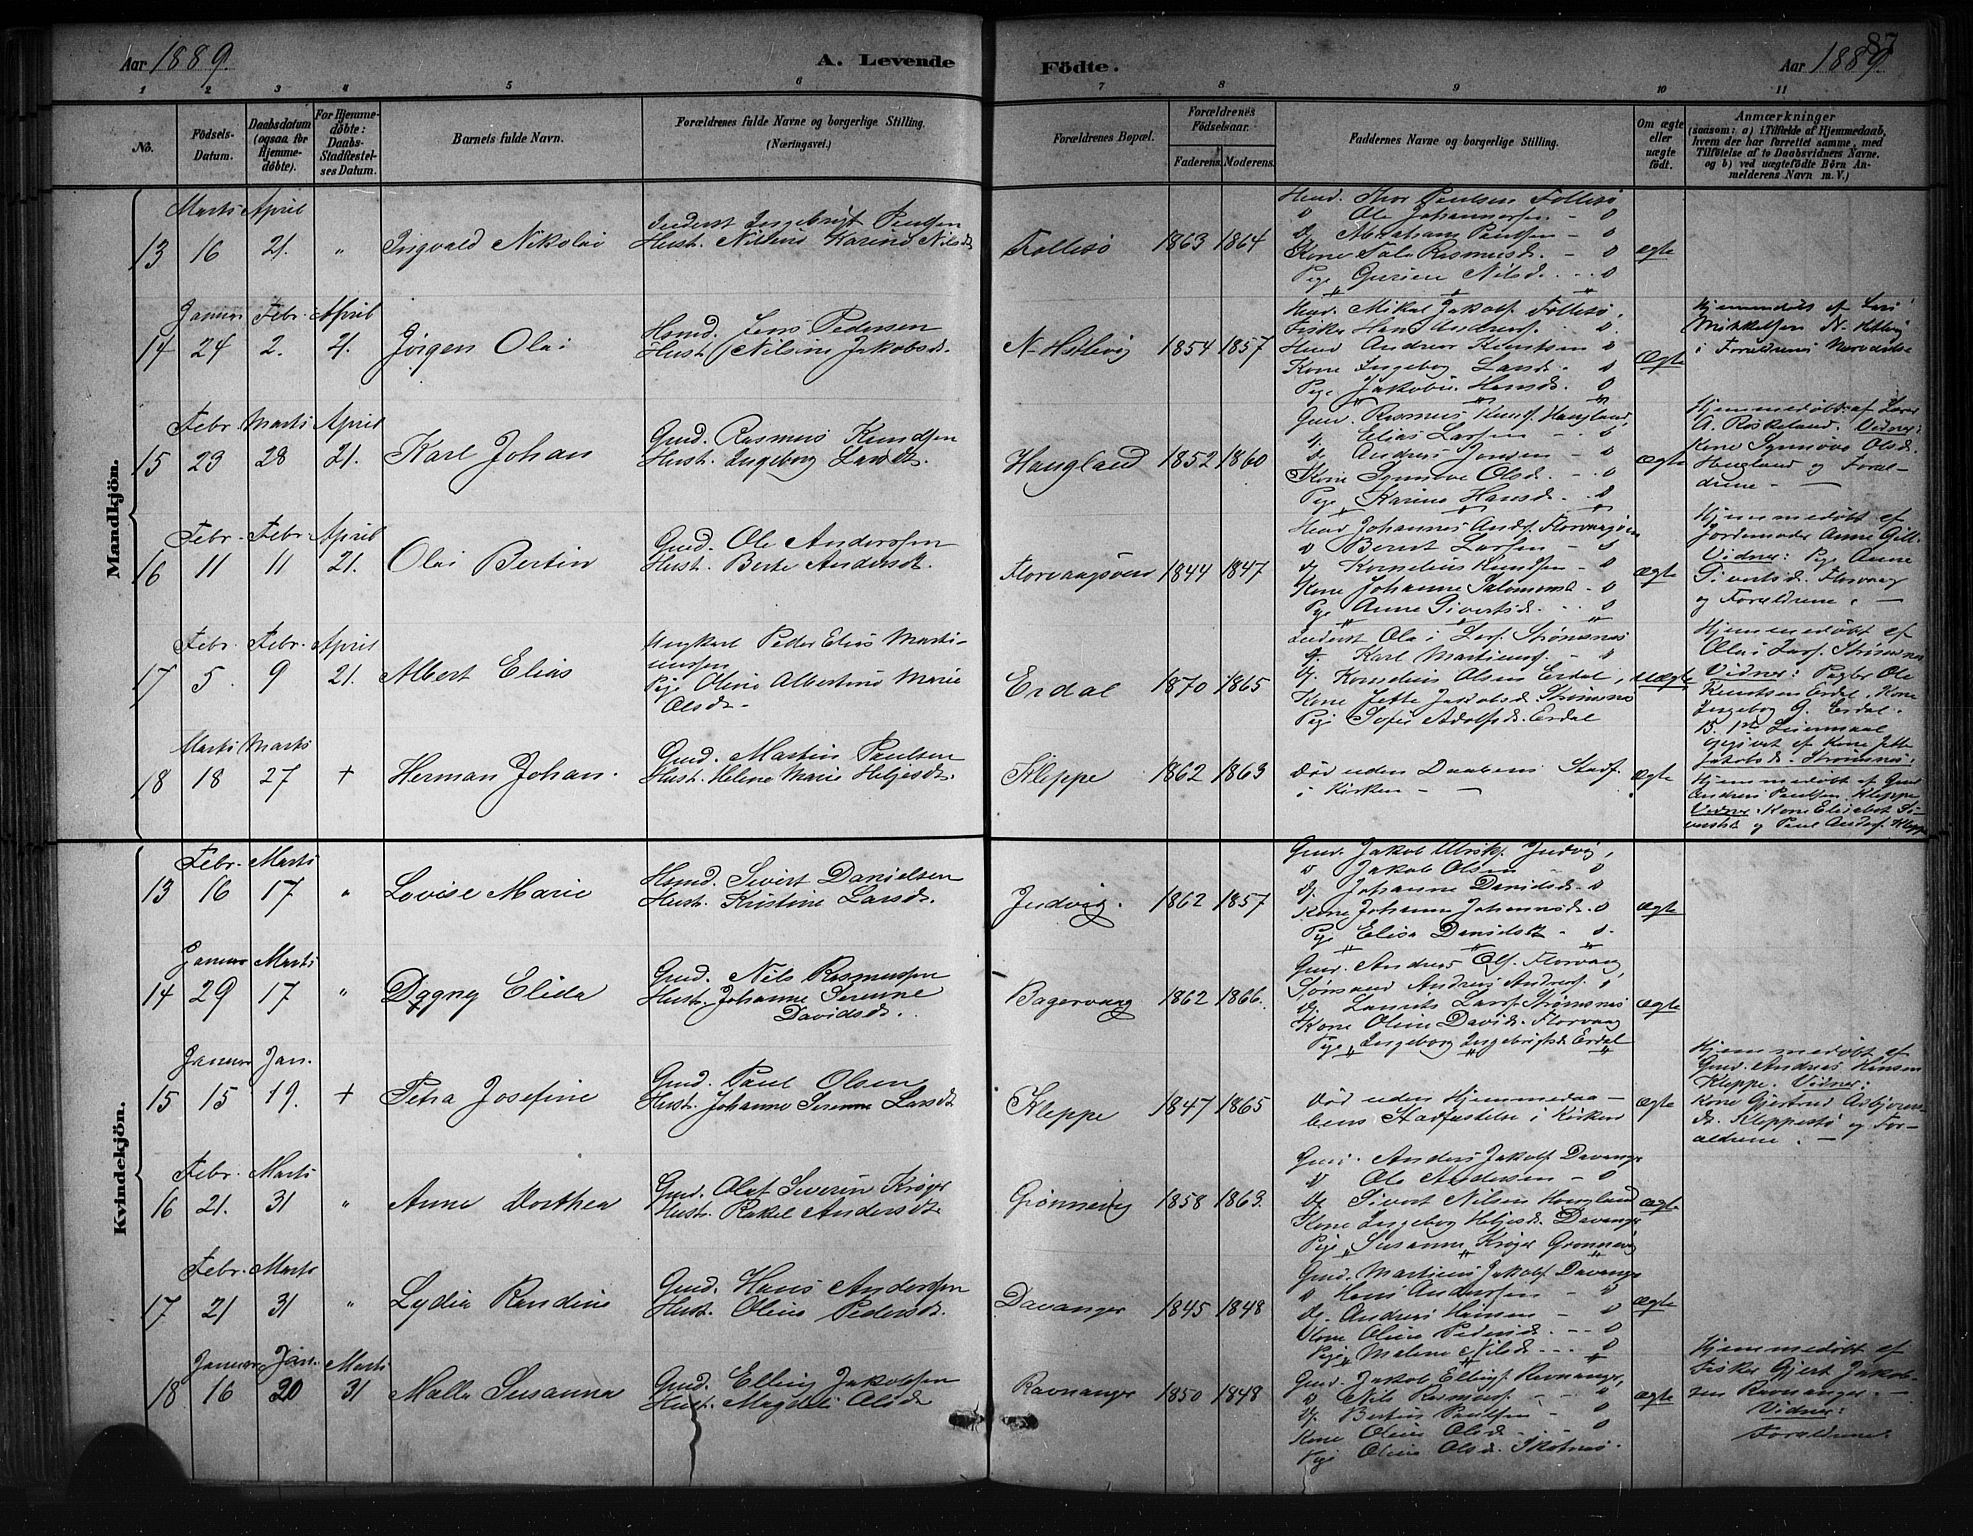 Aar 1889. A. Levende Födte. Aar 1889
87
1 2 3 4 5 6 7 8 9 10 11
No. Födsels-Datum. Daabsdatum (ogsaa for Hjemme-döbte). For Hjemme-döbte: Daabs-Stadfæstel-ses Datum. Barnets fulde Navn. Forældrenes fulde Navne og borgerlige Stilling. (Næringsvei.) Forældrenes Bopæl. Forældrenes Födselsaar. Faderens. Moderens. Faddernes Navne og borgerlige Stilling. Om ægte eller uægte födt. Anmærkninger (saasom: a) i Tilfælde af Hjemmedaab, hvem der har forrettet samme, med Tilföielse af to Daabsvidners Navne, og b) ved uægtefödte Börn An-melderens Navn m. V.)
Mandkjön.
Marts April
13 16 21. " Ingvald Nikolai
Inderst Ingebrigt Paulsen
Hust. Nilsine Karine Nilsd.
Follesö 1863 1864
Huusd. Thor Paulsen Follesö
" Ole Johannesen - "
Dg. Abraham Paulsen - "
Kone Sale Rasmusd. - "
Pige Gurine Nilsd. - "
ægte
Januar Febr. April
14 24 2. 21. Jörgen Olai
Huusmd. Jens Pedersen
Hust. Nilsine Jakobsd.
N. Hetlevig 1854 1857
Mikal Jakobs. Follesö,
Fisker Hans Anders. "
Anders Knutsen "
Kone Ingeborg Larsd. "
Pige Jakobine Hansd. "
Ægte
Hjemmedöbt af
Mikkelsen N. Hetlevig
i Forældrenes Nærværelse
Febr Marts April
15 23 28 21. Karl Johan
Gmd. Rasmus Knudsen
Hust. Ingeborg Larsdt.
Haugland 1852 1860
Gmd. Rasmus Knuds. Haugland,
" Elias Larsen - "
Dg. Anders Jonsen - "
Kone Synnöve Olsd. - "
Pige Karine Hansd. - "
ægte
Hjemmedöbt af Lærer
A. Röskeland. Vidner:
Kone Synnöve Olsd.
Haugland og Foræl-
drene -
Febr. Febr. April
16 11 11 21. Olai Bertin
Gmd. Ole Andersen
Hust. Berte Andersdt.
Florvaagsören 1844 1847
Johannes Ands. Florvaagören
" Bernt Larsen - "
Dg. Kornelius Knudsen - "
Kone Johanne Salomonsd. "
Pige Anne Sivertsd. - "
ægte
Hjemmedöbt af
Jordemoder Anne Gill.
Vidner: Pige Anne
Sivertsd. Florvaag
og Forældrene. -
Febr. Febr. April
17 5. 9 21. Albert Elias
Ungkarl Peder Elias Marti-
nussen
Pige Oline Albertine Marie
Olsdt.
Erdal 1870 1865
Inderst Olai Lars. Strömsnes
" Karl Martinus. "
Dg. Kornelius Olsen Erdal,
Kone Jette Jakobsd. Strömsnes
Pige Sofie Adolfsd. Erdal
uægte
Hjemmedöbt af
Olai Lars. Strömsnes
Vidner: Pagter Ole
Knutsen Erdal, Kone
Ingeborg G. Erdal.
B. 1ste Leiermaal
opgivet af Kone Jette
Jakobsd. Strömsnes.
Marts Marts
18 18 27 + Herman Johan.
Gmd. Martin Paulsen
Hust. Helene Marie Heljesdt.
Kleppe 1862 1863
Död uden Daabens Stadf.
i Kirken -
Ægte
Hjemmedöbt af Gmd.
Anders Paulsen Kleppe
Vidner: Kone Elisabet Si-
vertsdt. og Paul Anders. Kleppe
Kvindekjön.
Febr. Marts
13 16 17 " Lovise Marie
Huusmd. Sivert Danielsen
Hust. Kristine Larsdt.
Indvig. 1862 1857
Gmd. Jakob Indvig,
" Jakob Olsen "
Dg. Johannes Davidsd. "
Kone Johanne Johannesd. "
Pige Elisa Davidsdt. "
ægte
Januar Marts
14 29 17 " Dagny Elida
Gmd. Nils Rasmussen
Hust. Johanne Serenne
Davidsdt.
Bagervaag 1862 1866.
Gmd. Anders Ols. Florvaag,
Sömand Andreas Anders. "
Dg. Laurits Lars. Strömsnes
Kone Oline Davids. Florvaag
Pige Ingeborg Ingebrigtsd. Erdal
ægte
Januar Jan.
15 15 19. + Petra Josefine
Gmd. Paul Olsen
Hust. Johanne Serenne Larsdt.
Kleppe 1847 1865
Död uden Hjemmedaa-
bens Stadfæstelse i Kirken
ægte
Hjemmedöbt af
Gmd. Anders Hansen
Kleppe. Vidner:
Kone Gjertrud Asbjörns-
dt. Kleppestö og For-
ældrene. -
Febr. Marts
16 21. 31 " Anne Dorthea
Gmd. Olaf Severin Kröger
Hust. Rakel Andersdt.
Grönnevig 1858 1863.
Gmd. Anders Jakobs. Davanger
" Ole Andersen - "
Dg. Sivert Nilsen Haugland
Kone Ingeborg Heljesd. Davanger
Pige Susanne Kröger Grönnevig
ægte.
Febr. Marts
17 21 31 " Lydia Randine
Gmd. Hans Anderssen
Hust. Oline Pedersdt.
Davanger 1845 1848
Gmd. Martinus Jakobs. Davanger
" Hans Anderssen - "
Dg. Anders Hansen - "
Kone Oline Pedersd. - "
Pige Malene Nilsd. - "
Ægte
Januar Jan. Marts
18 16 20 31 Malla Susanna
Gmd. Elling Jakobsen
Hust. Magdeli Olsdt.
Ravnanger 1850 1848
Gmd. Jakob Ellings. Ravnanger,
" Nils Rasmus. - "
Dg. Bertin Paulsen - "
Kone Oline Olsd. - "
Pige Oline Olsd. Skotnes.
Ægte
Hjemmedöbt af
Fisker Gjert Jakob-
sen Ravnanger. -
Vidner:
Forældrene.